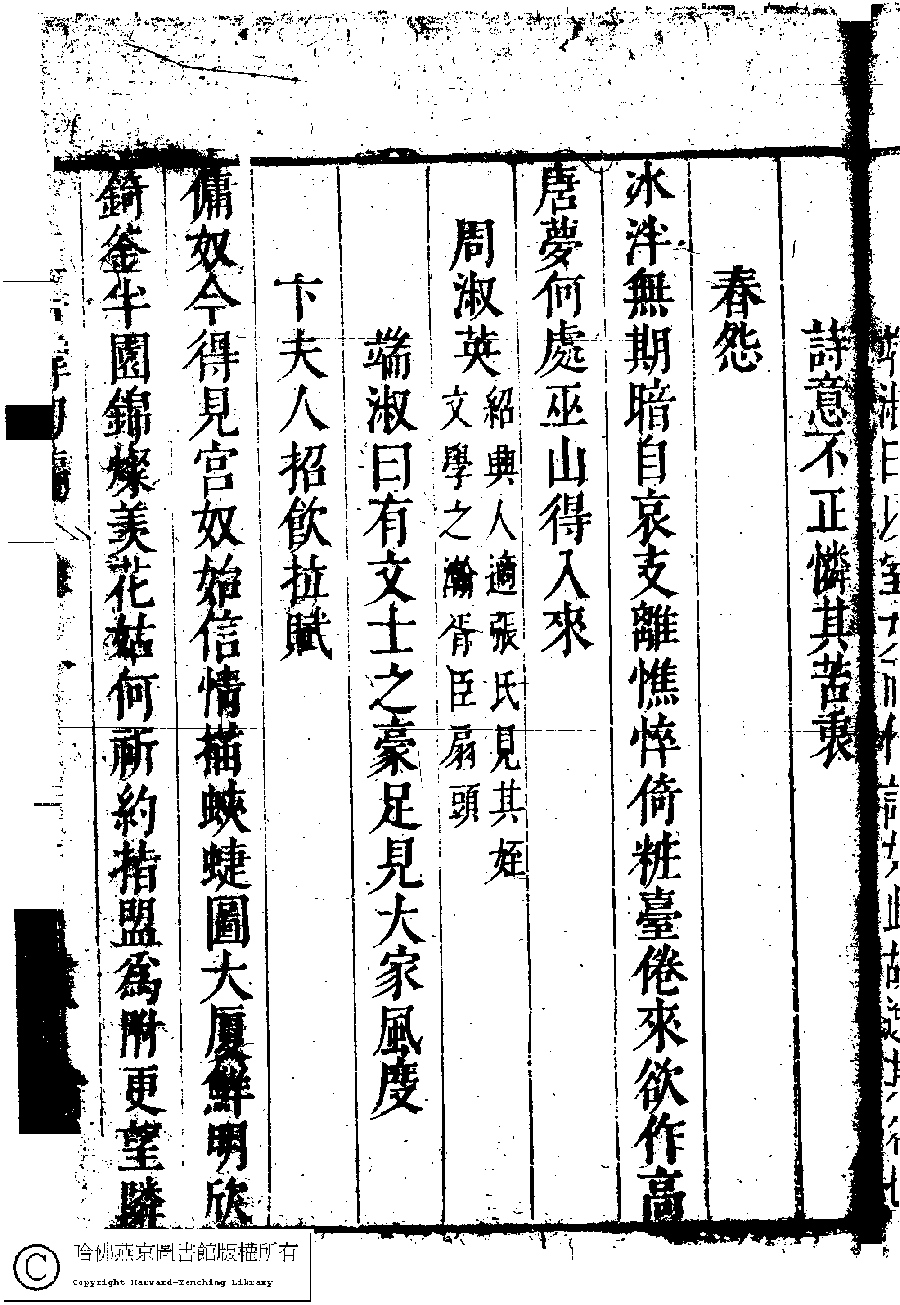 詩意不正憐其苦衷
春怨
冰泮無期暗自哀支離憔悴倚粧臺倦來欲作高
唐夢何處巫山得入來
周淑英
紹興人適張氏見其姪
文學之瀚胥臣扇頭
端淑曰有文士之豪足見大家風度
卞夫人招飲拉賦
傭奴今得見宮奴始信情描蛺蜨圖大厦鮮明欣
錡釜半園錦燦美花姑何祈約指盟爲附更望隣
哈佛燕京圖書館版權所有
Copyright Harvard-Yenching Library